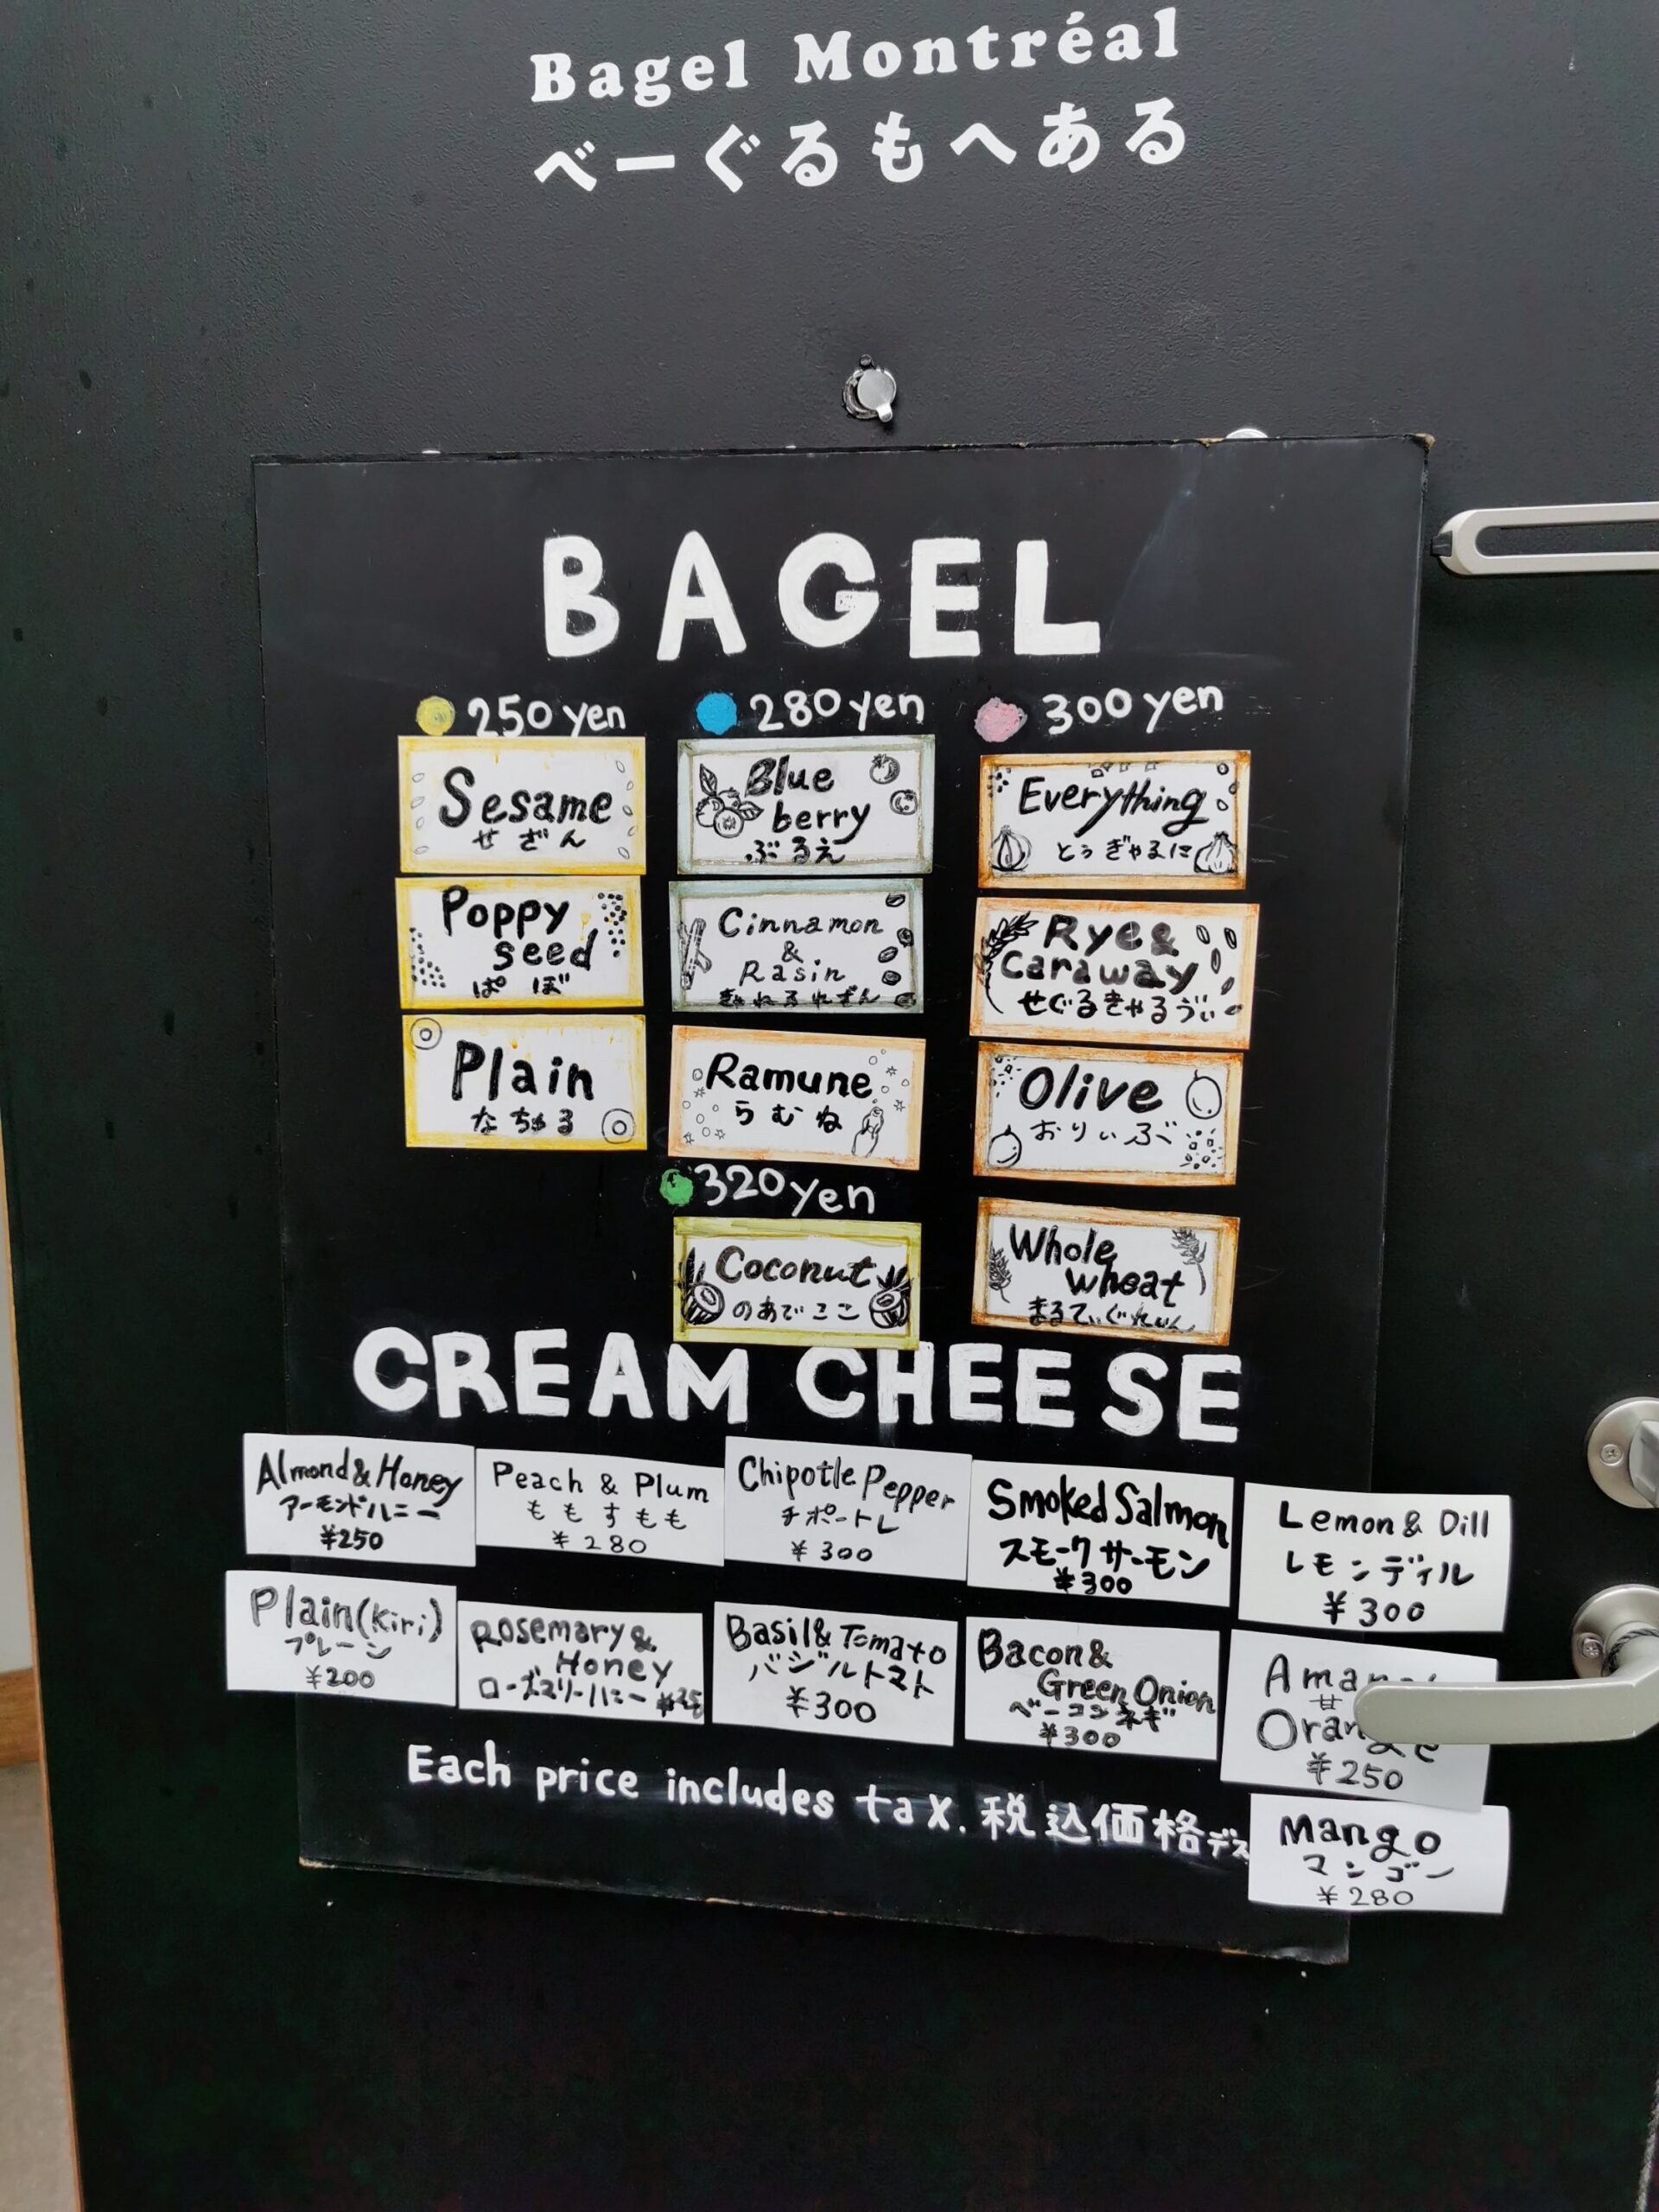 Bagel Montréal
べーぐるもへある
BAGEL
250 yen
Sesame
せざん
Poppy
seed
ぱぼ
Plain
なちゅる
280 yen
Blue
berry
ぶるえ
Cinnamon
&
Rasin
Ramune
らむね
320 yen
Coconut
のあでここ
300 yen
Everything
とぅぎゃるに
Rye &
Caraway
せぐるきゃるうぃ
Olive
おりぃぶ
Whole
wheat
CREAM CHEESE
Almond & Honey
アーモンドハニー
¥250
Peach & Plum
ももすもも
¥280
Chipotle Pepper
チポートレ
¥300
Smoked Salmon
スモークサーモン
¥300
Lemon & Dill
レモンディル
¥300
Plain (kiri)
プレーン
¥200
Rosemary &
Honey
ローズマリーハニー
Basil & Tomato
バジルトマト
¥300
Bacon &
Green Onion
ベーコンネギ
¥300
¥250
Mango
マンゴー
¥280
Each price includes tax. 税込価格デス